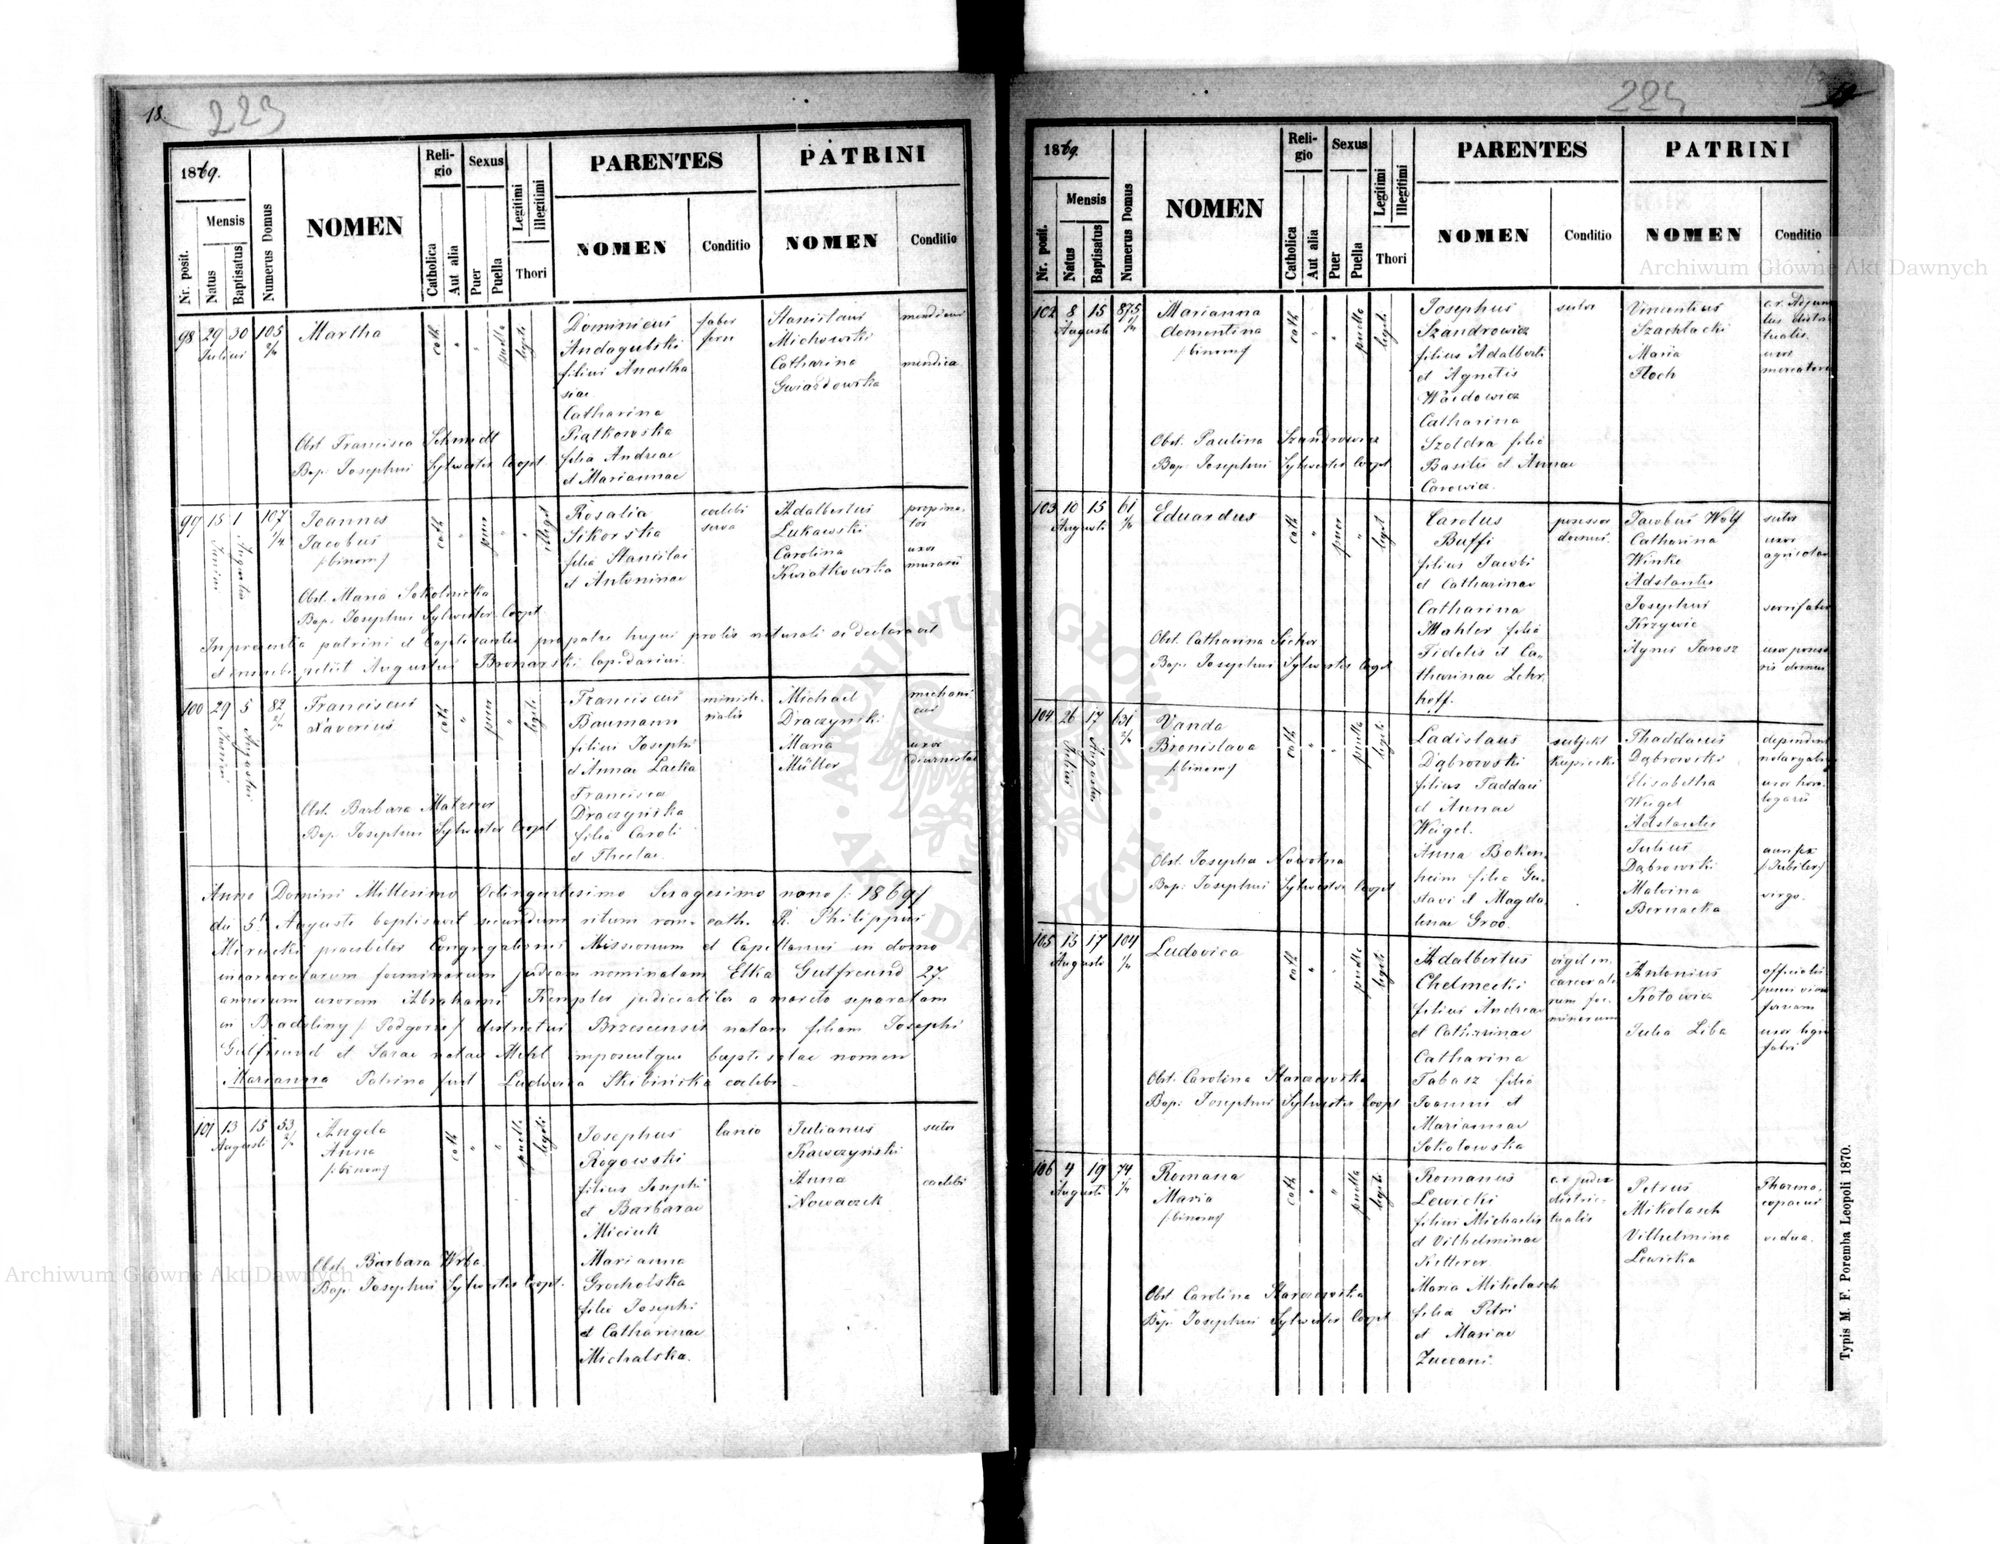 18.
223
1869.
Nr. posit.
Mensis
Natus
Baptisatus
Numerus Domus
NOMEN
Religio
Catholica
Aut alia
Sexus
Puer
Puella
Legitimi
Illegitimi
Thori
PARENTES
NOMEN
Conditio
PATRINI
NOMEN
Conditio
98 29 30 105 Martha cath " " puella legit
Julius
Dominicus faber
ferri
filius Anastha
siae
Catharina
Piątkowska
filia Andreae
et Mariannae
Stanislaus mendicus
Michowski
Catharina mendica
Gwiazdowska
Obst. Francisca Schmidt
Bap. Josephus Sylwester Coopt.
99 15 1 107 Joannes cath " puer " illegit
Junius Augusti
Jacobus
/:binom:/
Rosalia caelebs
Sikorska serva
filia Stanislai
et Antoninae
Adalbertus propina-
Lukawski tor
Carolina uxor
Kwiatkowska murarii
Obst. Maria Sokolnicka
Bap. Josephus Sylwester Coopt.
In presentia patrini et baptisantis pro patre hujus prolis naturali se declaravit
et inscribi petiit Augustus Bronarski lapidarius.
100 29 5 82 Franciscus cath " puer " legit
Xaverius
Junii Augusti
Franciscus ministe-
Baumann rialis
filius Josephi
et Annae Lacka
Francisca
Draczyńska
filia Caroli
et Theclae
Michael mechani
Draczynski cus
Maria uxor
Müller diurnistae
Obst. Barbara Matzner
Bap. Josephus Sylwester Coopt
Anno Domini Millesimo Octingentesimo Sexagesimo nono /:1869/
die 5t Augusti baptisavit secundum ritum rom. cath. R. Philippus
Mirucki praesbiter Congregationis Missionum et Capellanus in domo
incarceratarum foeminarum judeam nominatam Elka Gutfreund 27.
annorum uxorem Abrahami Kempler judicialiter a marito separatam
in districtus Brzescensis natam filiam Josephi
Gutfreund et Sarae natae Mehl imposuitque baptisatae nomen
Marianna Patrina fuit Ludovica Skibińska caelebs
101 13 15 53 Angela cath " " puella legit
Augusti
Anna
/:binom:/
Josephus lanio
Rogowski
filius Josephi
et Barbarae
Miciuk
Marianna
Grocholska
filia Josephi
et Catharinae
Michalska.
Julianus sutor
Kawczyński
Anna caelebs
Nowaczek
Obst. Barbara Wrba
Bap. Josephus Sylwester Coopt.
1869.
Nr. posit.
Mensis
Natus
Baptisatus
Numerus Domus
NOMEN
Religio
Catholica
Aut alia
Sexus
Puer
Puella
Legitimi
Illegitimi
Thori
PARENTES
NOMEN
Conditio
PATRINI
NOMEN
Conditio
102 8 15 875 Marianna cath " " puella legit
Augusti
Clementina
/:binom:/
Josephus sutor
Szandrowicz
filius Adalberti
et Agnetis
Waidowicz
Catharina
Szoldra filia
Basilii et Annae
Carowicz.
Vincentius
Szachlacki
Maria uxor
Floch mercatoris
Obst. Paulina Szandrowicz
Bap. Josephus Sylwester Coopt
103 10 15 61 Eduardus cath " puer " legit
Augusti
Carolus possessor
Buffi domus.
filius Jacobi
et Catharinae
Catharina
Mahler filia
Fidelis et Ca-
tharinae Lehr
hoff.
Jacobus Wolf sutor
Catharina uxor
Winke agricolae
Adstantes
Josephus serrifaber
Krzywic
Agnes Jarosz uxor posses
ris domus
Obst. Catharina Sicher
Bap. Josephus Sylwester Coopt
104 26 17 631 Vanda cath " " puella legit
Julius Augusti
Bronislava
/:binom:/
Ladislaus subjekt
Dąbrowski kupiecki
filius Taddaei
et Annae
Weigel.
Anna Boken-
heim filia Gu-
stavi et Magda
lenae Groo.
Thaddaeus
Dąbrowski
Elisabetha uxor horo-
Weigel logarii
Adstantes
Julius aurifex
Dąbrowski /:Jubiler:/
Malvina virgo.
Bernacka
Obst. Josepha Nowotna
Bap. Josephus Sylwester Coopt
105 13 17 104 Ludovica cath " " puella legit
Augusti
Adalbertus vigil in-
Chelmecki carcerata
filius Andreae rum foe-
et Catharinae minarum
Catharina
Tabasz filia
Joannis et
Mariannae
Sokołowska
Antonius officialis
Kotowicz penes viam
ferream
Julia Liba uxor ligni
fabri
Obst. Carolina Starczewska
Bap. Josephus Sylwester Coopt
106 4 19 74 Romana cath " " puella legit
Augusti
Maria
/:binom:/
Romanus c.r. judex
Lewicki distric-
filius Michaelis tualis
et Vilhelminae
Ketterer
Maria Mikolasch
filia Petri
et Mariae
Zuccani.
Petrus Pharma-
Mikolasch copaeus
Vilhelmina vidua.
Lewicka
Obst. Carolina Starczewska
Bap. Josephus Sylwester Coopt
Typis M. F. Poremba Leopoli 1870.
Archiwum Główne Akt Dawnych
Archiwum Główne Akt Dawnych
ARCHIWUM GŁÓWNE AKT DAWNYCH